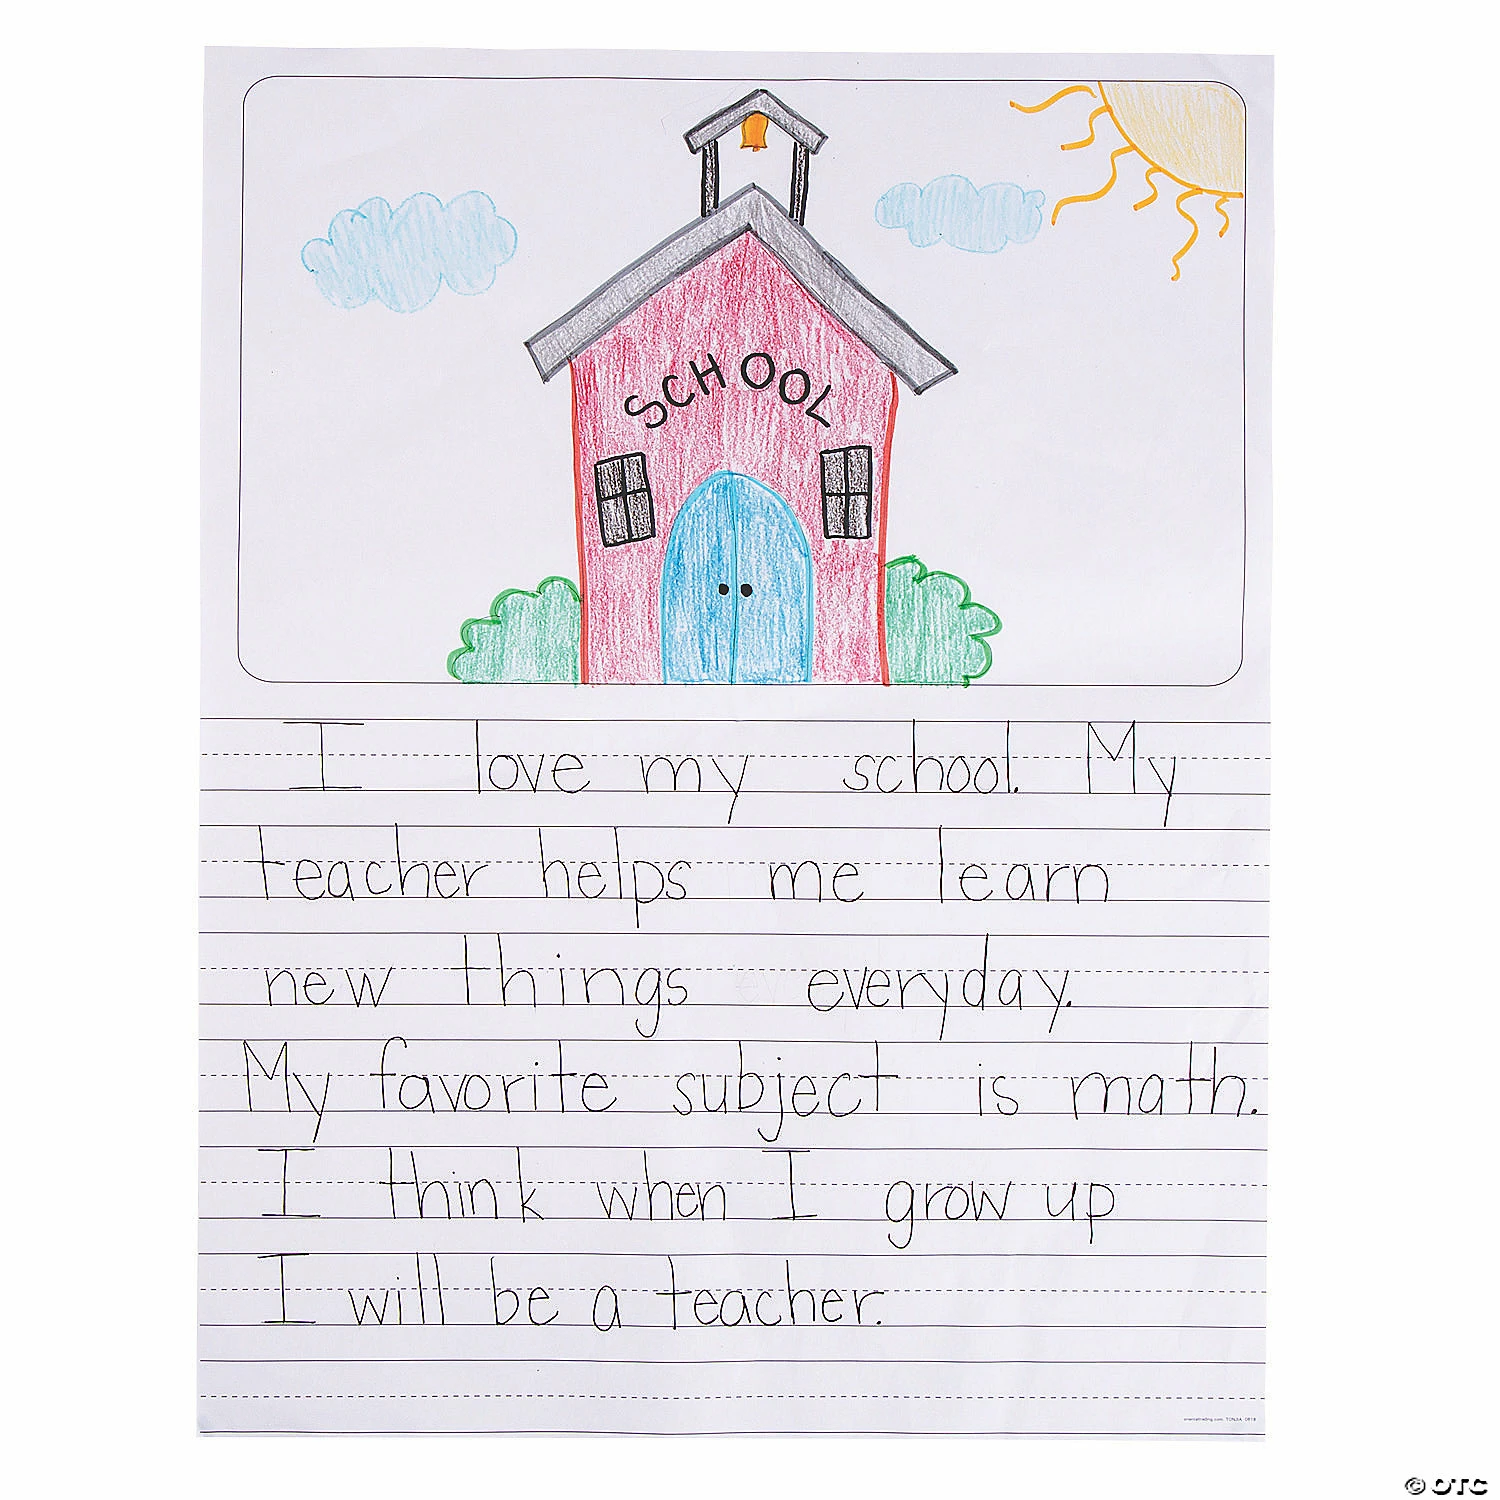 SCHOOL
I love my school. My
teacher helps me learn
new things everyday.
My favorite subject is math.
I think when I grow up
I will be a teacher.
© OTC